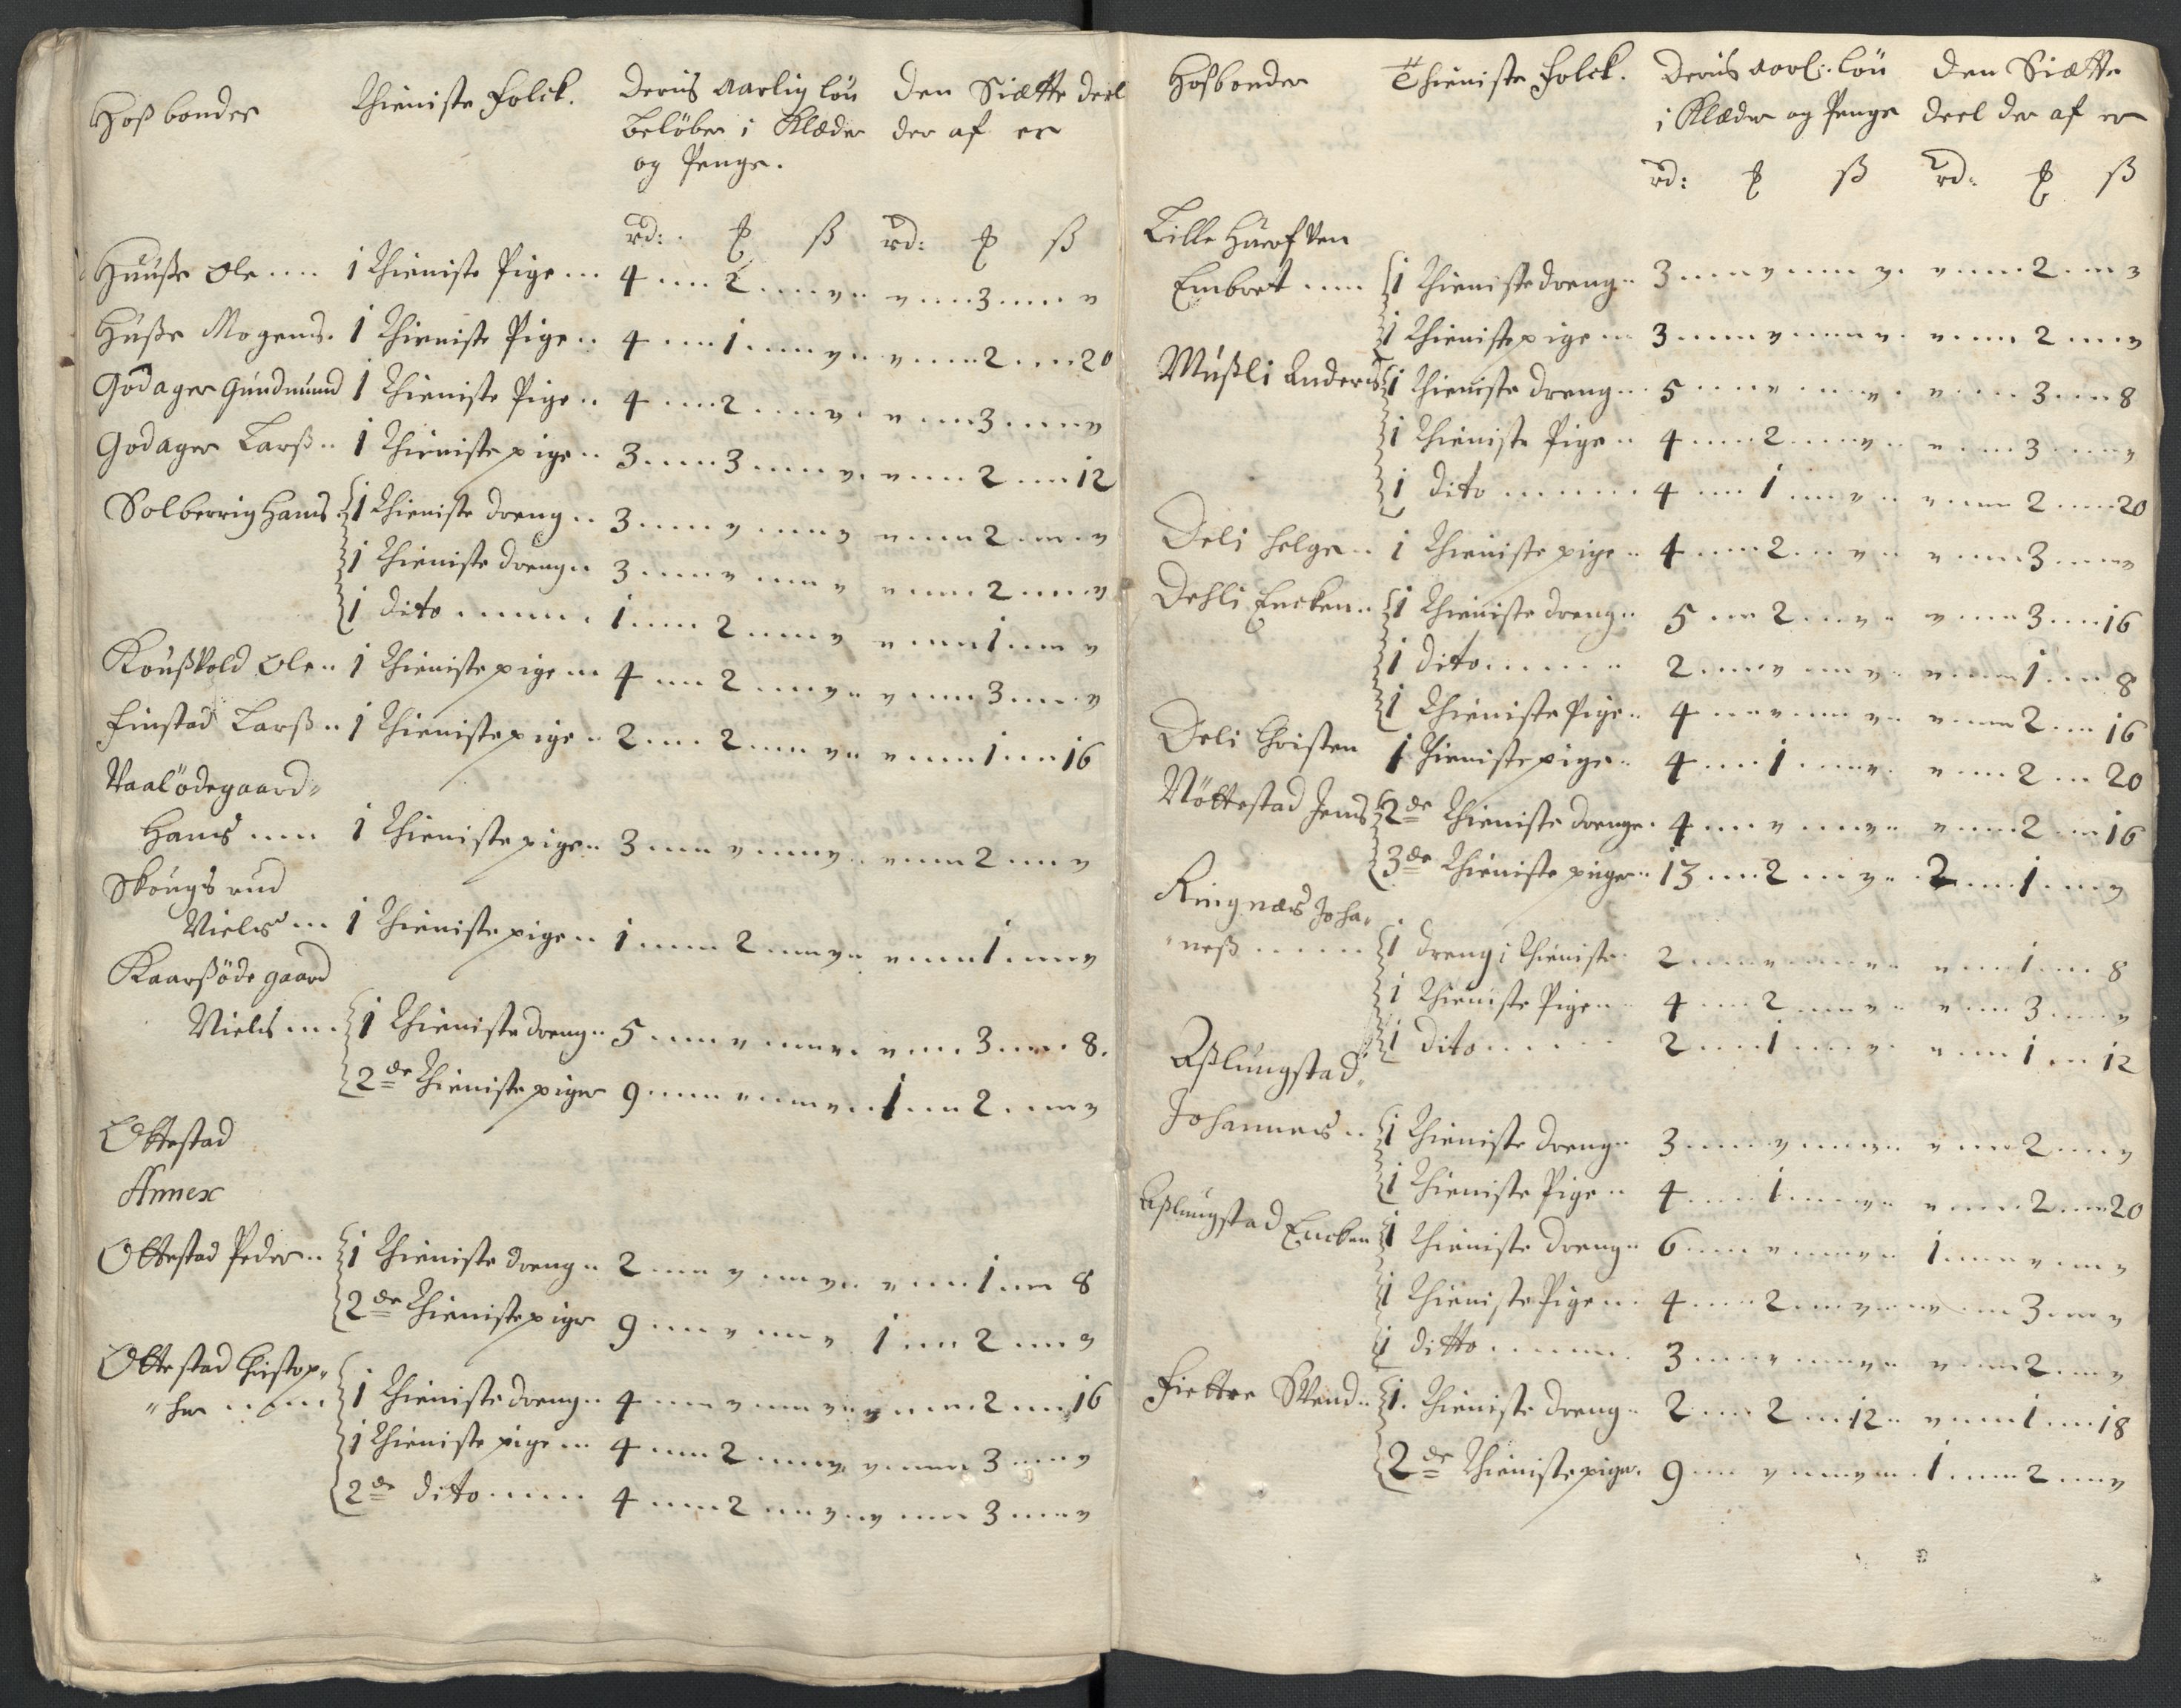 Hosbonder Thieniste Folck. Deris Aarlig lön Den Siette deel
beløber i Klæder der af er
og Penge.
rd: ₰ ß rd: ₰ ß
Huuse Ole .... 1 Thieniste Pige ... 4 .... 2 .... " .. " .... 3 .... "
Huse Mogens. 1 Thieniste Pige .. 4 .... 1 .... " .. " .... 2 .... 20
Godager Gundmund 1 Thieniste Pige .. 4 .... 2 .... " . " .... 3 .... "
Godager Larß .. 1 Thieniste pige .. 3 .... 3 .... " . " .... 2 .... 12
Solberrig Hans . 1 Thieniste dreng .. 3 .... " .... " " .... 2 .... "
1 Thieniste dreng .. 3 .... " .... " " .... 2 .... "
1 dito ....... 1 .... 2 .... " " .... 1 .... "
Kouskold Ole .. 1 Thieniste pige ... 4 .... 2 .... " .. " .... 3 .... "
Finstad Larß .. 1 Thieniste pige .. 2 .... 2 .... " .. " .... 1 .... 16
Vaalödegaard "
Hans .... 1 Thieniste pige .. 3 .... " .... " .. " .... 2 .... "
Skougs rud
Niels ... 1 Thieniste pige .. 1 .... 2 .... " .. " .... 1 .... "
Kaarßöde gaard
Niels .... 1 Thieniste dreng .. 5 .... " .... " . " .... 3 .... 8.
2de Thieniste piger 9 .... " .... " .. 1 .... 2 .... "
Ottestad
Annex
Ottestad Peder .. 1 Thieniste dreng .. 2 .... " .... " .. " .... 1 .... 8
2de Thieniste piger 9 .... " .... " 1 .... 2 .... "
Ottestad Christop "
" her ...... 1 Thieniste dreng .. 4 .... " .... " .. " .... 2 .... 16
1 Thieniste pige ... 4 .... 2 .... " . " .... 3 .... "
2de dito ..... 4 .... 2 .... " .. " .... 3 .... "
Hosbonder Thieniste Folck. Deris aarl: lön Den Siette
i Klæder og Penge deel der af er
rd: ₰ ß rd: ₰ ß
Lille
Embret .... 1 Thieniste dreng .. 3 .... " .... " . " .... 2 .... "
1 Thieniste pige ... 3 .... " .... " . " .... 2 .... "
Mußli Anders 1 Thieniste dreng .. 5 .... " .... " . " .... 3 .... 8
1 Thieniste Pige .. 4 .... 2 .... " .. " .... 3 .... "
1 dito ....... 4 .... 1 .... " .. " .... 2 .... 20
Deli Helge .. 1 Thieniste pige .. 4 .... 2 .... " .. " .... 3 .... "
Dehli Encken .. 1 Thieniste dreng .. 5 .... 2 .... " .. " .... 3 .... 16
1 dito ....... 2 .... " .... " .. " .... 1 .... 8
1 Thieniste Pige .. 4 .... " .... " .. " .... 2 .... 16
Deli Christen 1 Thieniste pige .. 4 .... 1 .... " . " .... 2 .... 20
Nöttestad Jens 2de Thieniste drenge . 4 .... " .... " .. " .... 2 .... 16
3de Thieniste piiger .. 13 .... 2 .... " .. 2 .... 1 .... "
Ringnæs Joha "
" neß ..... 1 dreng i Thieniste . 2 .... " .... " .. " .... 1 .... 8
1 Thieniste Pige ... 4 .... 2 .... " .. " .... 3 .... "
1 dito ..... 2 .... 1 .... " . " .... 1 .... 12
Aßlungstad "
Johannes .. 1 Thieniste dreng .. 3 .... " .... " .. " .... 2 .... "
1 Thieniste Pige .. 4 .... 1 .... " .. " .... 2 .... 20
Aßlungstad Encken 1 Thieniste dreng .. 6 .... " .... " .. 1 .... " .... "
1 Thieniste Pige ... 4 .... 2 .... " .... " .... 3 .... "
1 ditto ....... 3 .... " .... " .. " .... 2 .... "
Fiettre Svend .. 1. Thieniste dreng .. 2 .... 2 .... 12 .. " .... 1 .... 18
2de Thieniste piger . 9 .... " .... " ... 1 .... 2 .... "